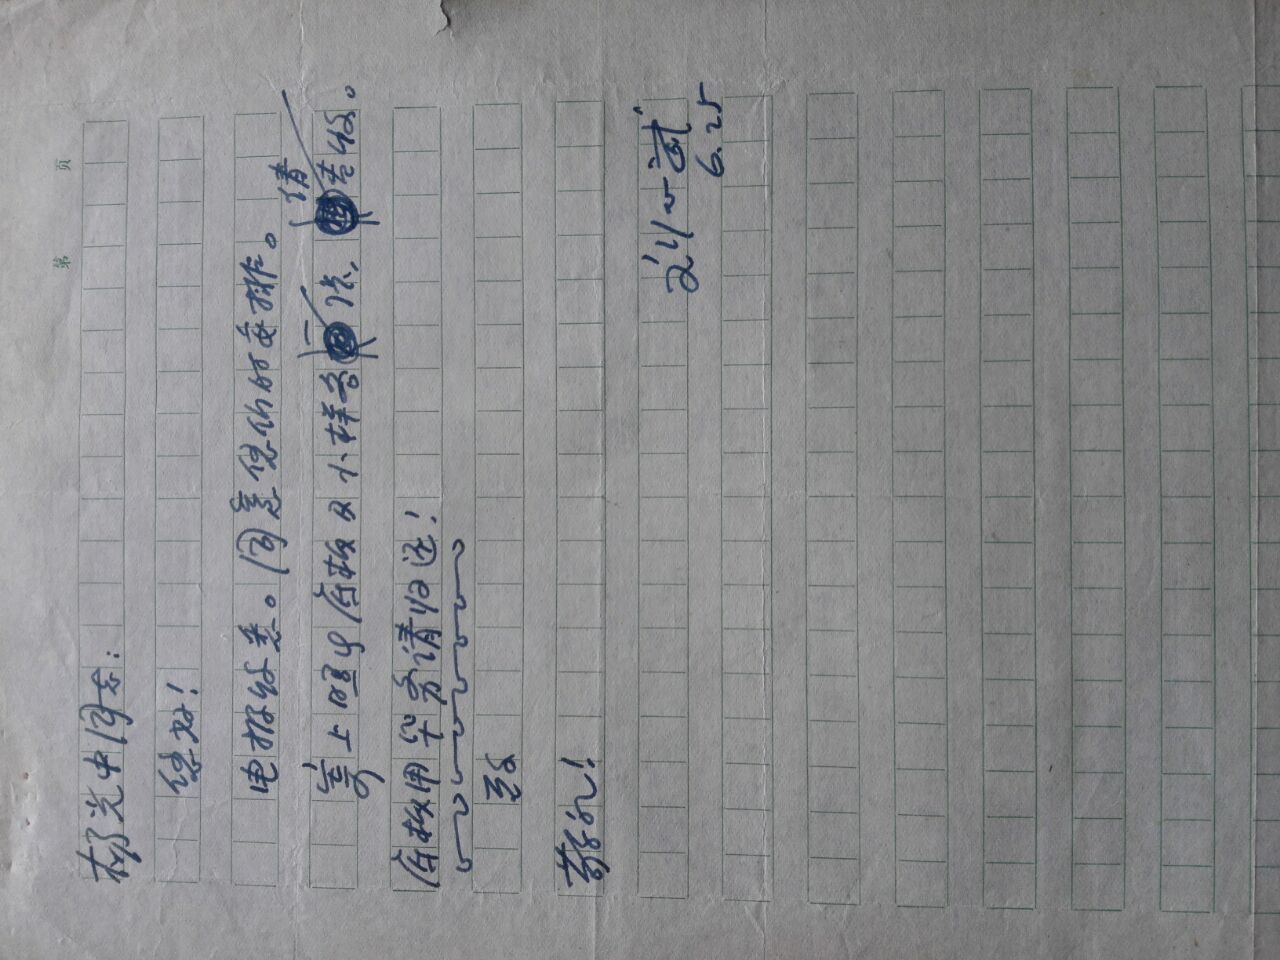 第 页
杨光中同志:
您好!
电报收悉。同意您们的安排。
寄上照片底板及小样各一张,请查收。
底板用毕务请归还!
致
敬礼!
6.25